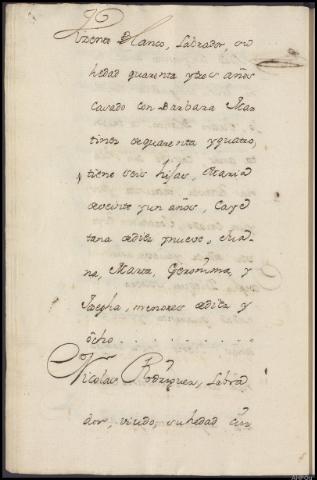 Vizente Blanco, Labrador, su
hedad quarenta ytres años
Casado con Barbara Mar-
tinez de quarenta yquatro,
tiene seis hijas, Maria
de veinte yun años, Caye-
tana de diez ynueve, Jua-
na, Maria, Geronima, y
Josepha, menores de diez y
ôcho . . . . . . . . . .
Nicolas Rodriguez, Labra
dor, viudo, su hedad cin